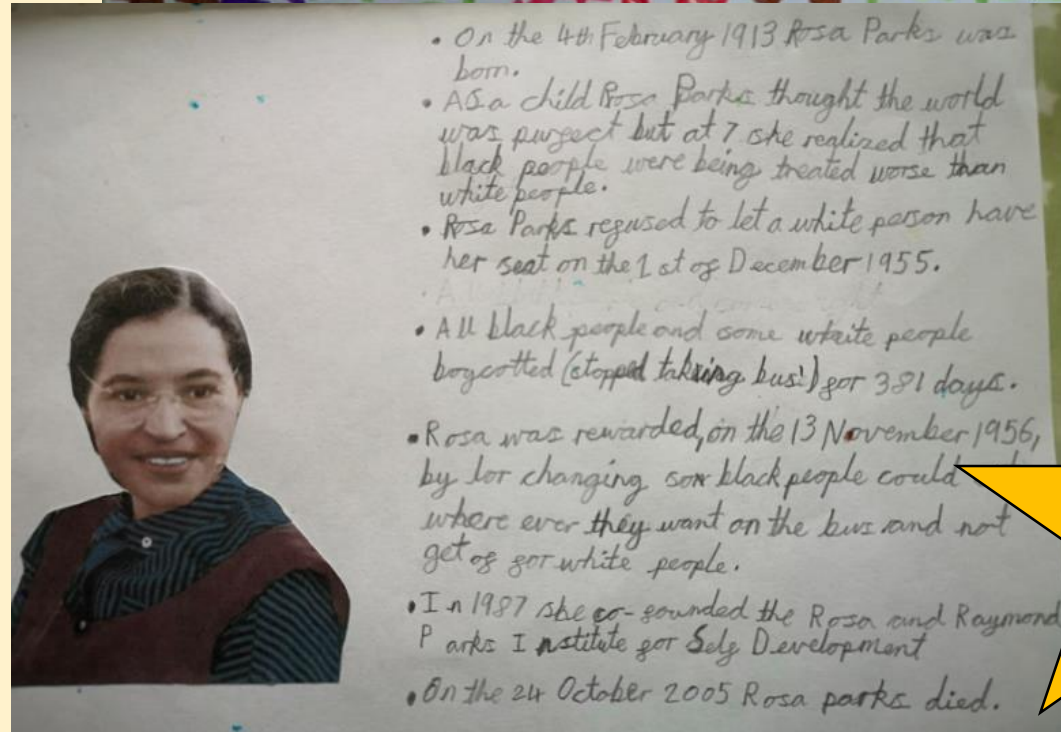 • On the 4th February 1913 Rosa Parks was
born.
• As a child Rosa Parks thought the world
was purfect but at 7 she realized that
black people were being treated worse than
white people.
• Rosa Parks refused to let a white person have
her seat on the 1st of December 1955.
• All black people and some white people
boycotted (stopped taking bus!) for 381 days.
• Rosa was rewarded, on the 13 November 1956,
by lor changing so black people could
where ever they want on the bus and not
get of for white people.
• In 1987 she co-founded the Rosa and Raymond
Parks Institute for Self Development
• On the 24 October 2005 Rosa parks died.